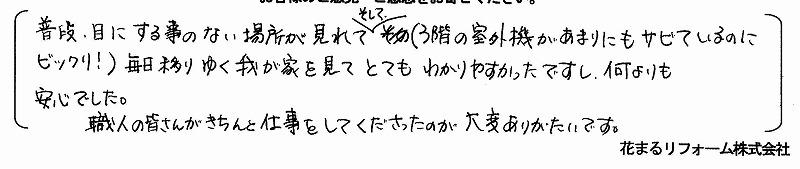 普段、目にする事のない場所が見れてそして(3階の室外機があまりにもサビているのに
ビックリ!)毎日移りゆく我が家を見てとてもわかりやすかったですし、何よりも
安心でした。
職人の皆さんがきちんと仕事をしてくださったのが大変ありがたいです。
花まるリフォーム株式会社